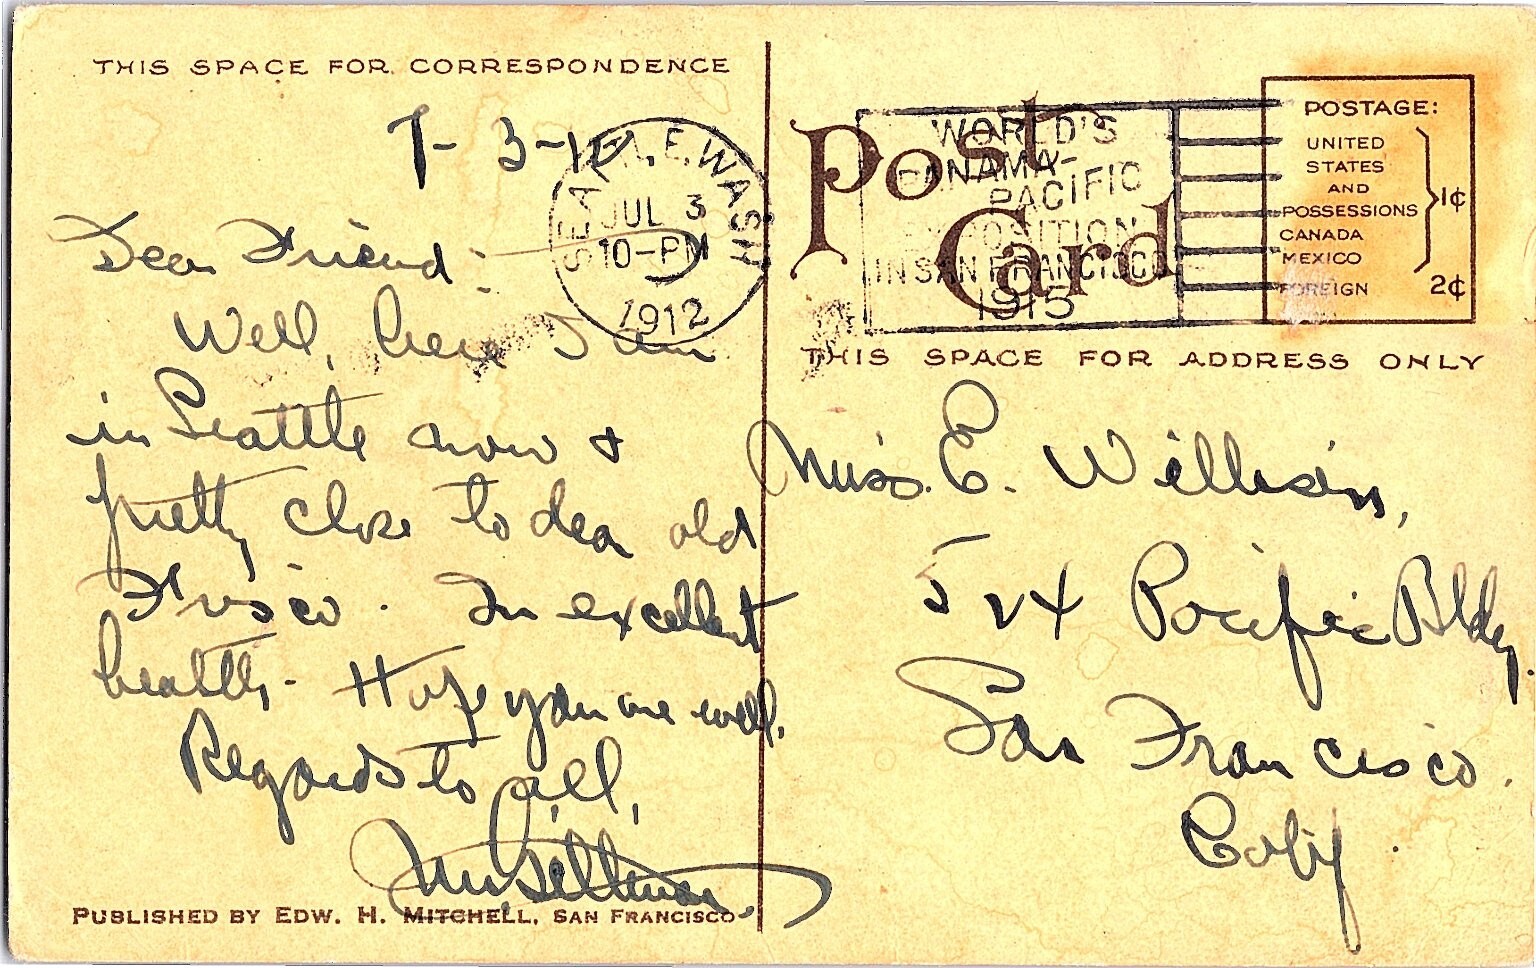 THIS SPACE FOR CORRESPONDENCE
7-3-12
Dear Friend:-
Well, here I am
in Seattle now &
pretty close to dear old
Frisco. In excellent
health. Hope you are well.
Regards to all,
PUBLISHED BY EDW. H. MITCHELL, SAN FRANCISCO.
SEATTLE, WASH
JUL 3
10-PM
1912
WORLD'S
PANAMA-
PACIFIC
EXPOSITION
IN SAN FRANCISCO
1915
Post
Card
POSTAGE:
UNITED
STATES
AND
POSSESSIONS 1¢
CANADA
MEXICO
FOREIGN 2¢
THIS SPACE FOR ADDRESS ONLY
Miss. E.
524 Pacific Bldg.
San Francisco.